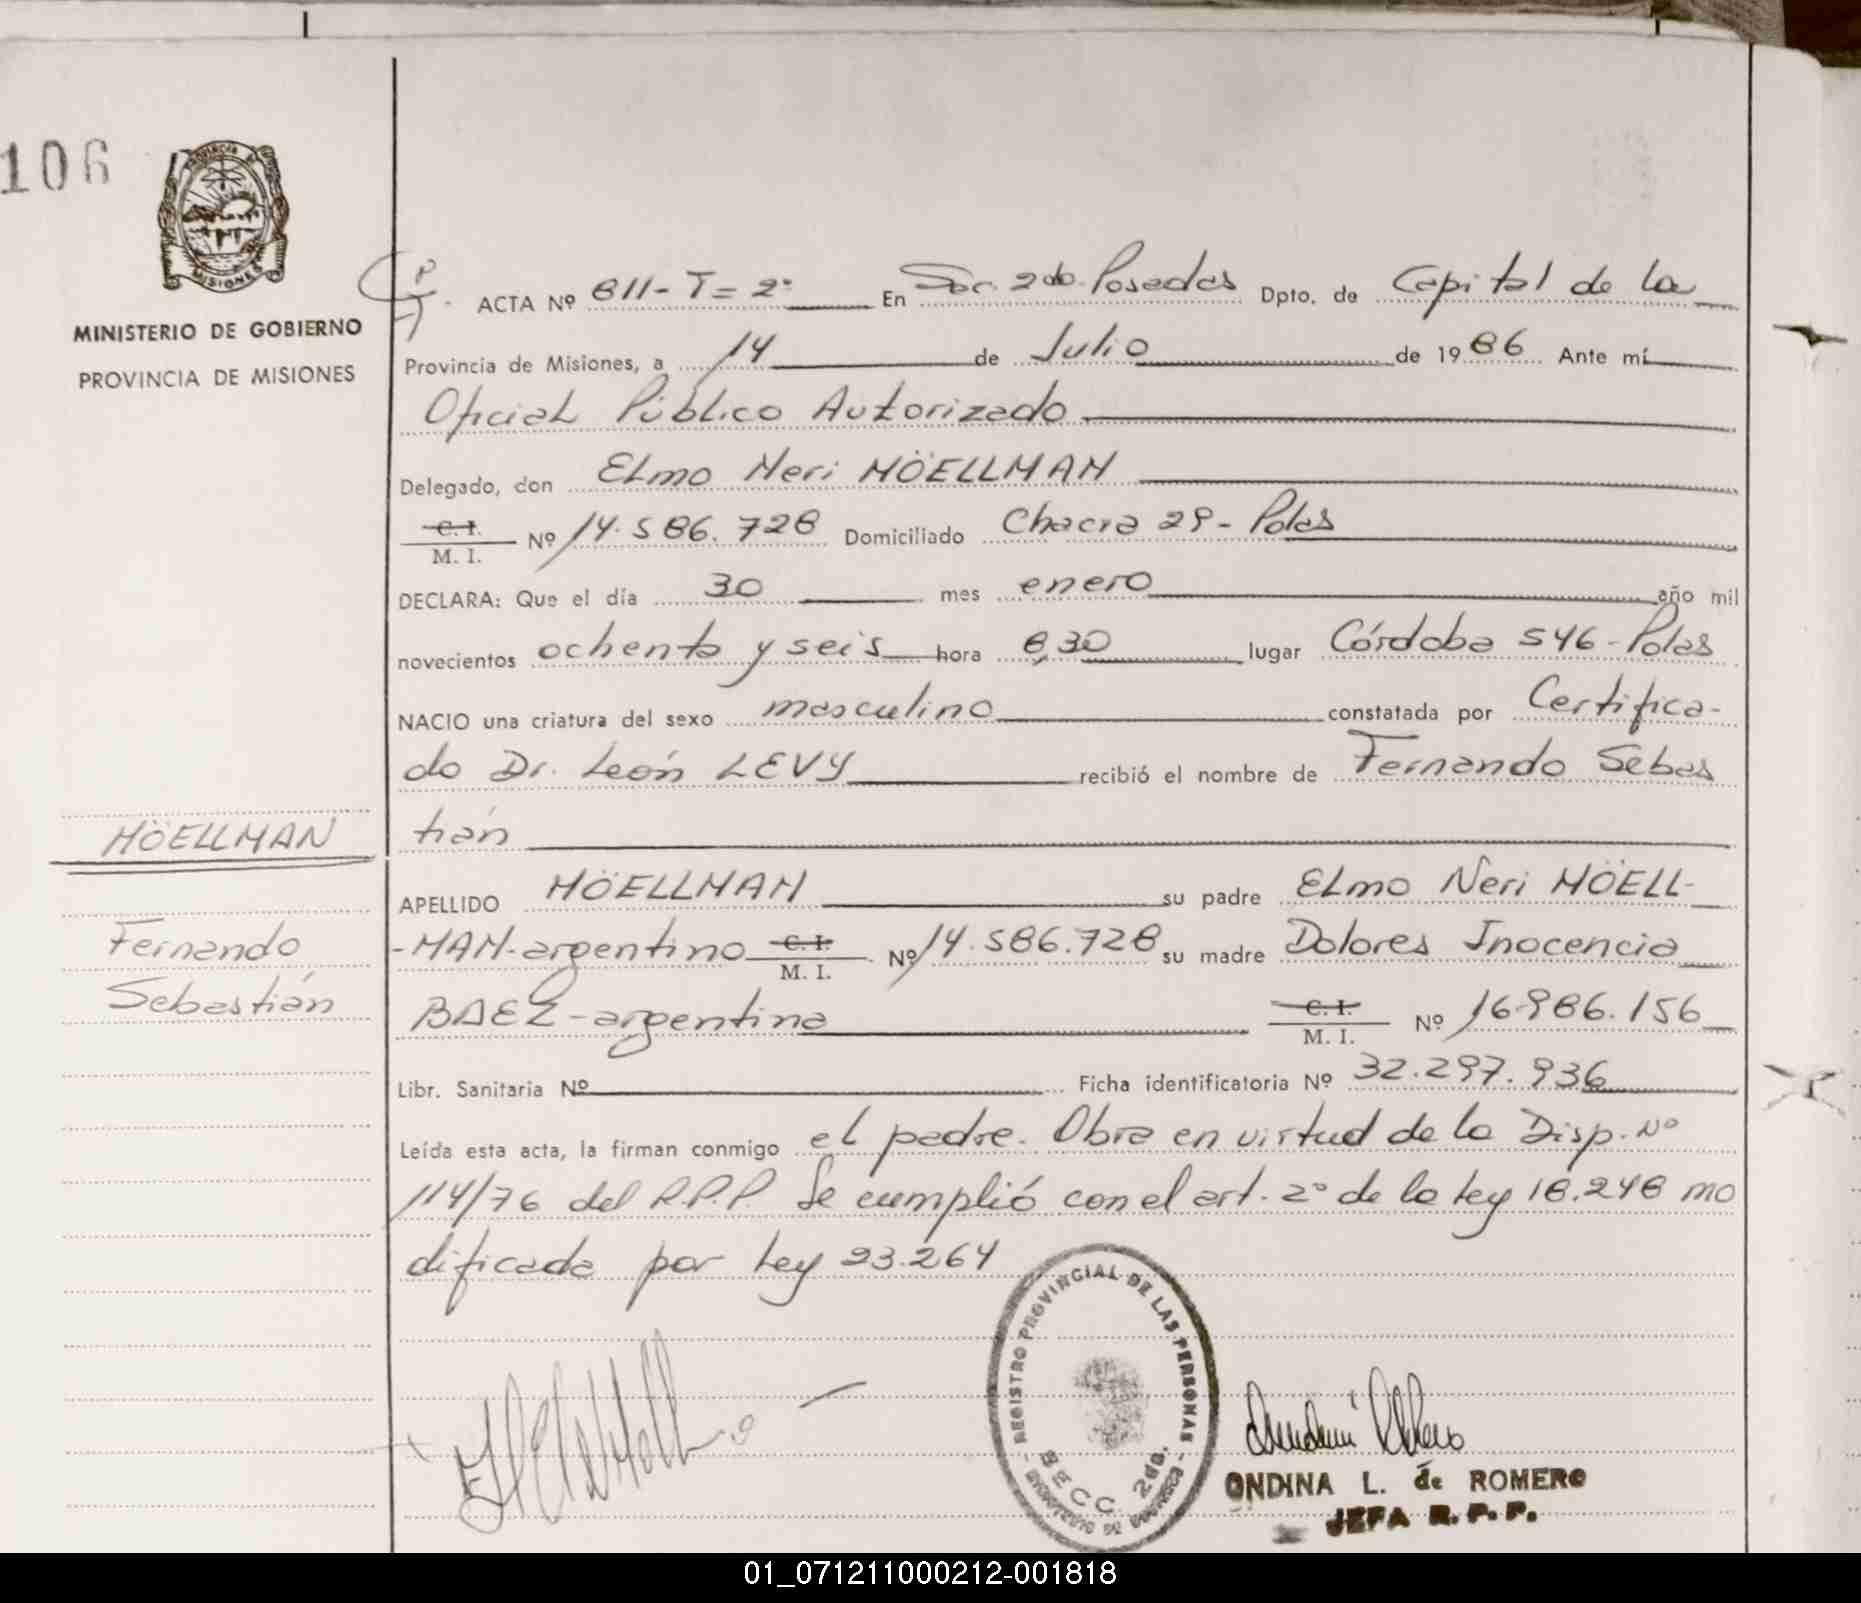 106
PROVINCIA DE
MISIONES
MINISTERIO DE GOBIERNO
PROVINCIA DE MISIONES
ACTA Nº 811-T=2º En Sec. 2da. Posadas Dpto. de Capital de la
Provincia de Misiones, a 14 de Julio de 1986 Ante mí
Oficial Público Autorizado
Delegado, don Elmo Neri MÖELLMAN
C. I.
M. I. Nº 14.586.728 Domiciliado Chacra 29- Pdas
DECLARA: Que el día 30 mes enero año mil
novecientos ochenta y seis hora 8,30 lugar Córdoba 546-Pdas
NACIO una criatura del sexo masculino constatada por Certifica-
do Dr. León LEVY recibió el nombre de Fernando Sebas
tián
MÖELLMAN
Fernando
Sebastián
APELLIDO MÖELLMAN su padre Elmo Neri MÖELL-
-MAN-argentino C. I. M. I. Nº 14.586.728 su madre Dolores Inocencia
BAEZ-argentina C. I. M. I. Nº 16.986.156
Libr. Sanitaria Nº Ficha identificatoria Nº 32.297.936
Leída esta acta, la firman conmigo el padre. Obra en virtud de la Disp. Nº
114/76 del R.P.P. Se cumplió con el art. 2º de la Ley 18.248 mo
dificada por Ley 23.264
REGISTRO PROVINCIAL DE LAS PERSONAS
SECC. 2da.
ONDINA L. de ROMERO
JEFA R. P. P.
01_071211000212-001818